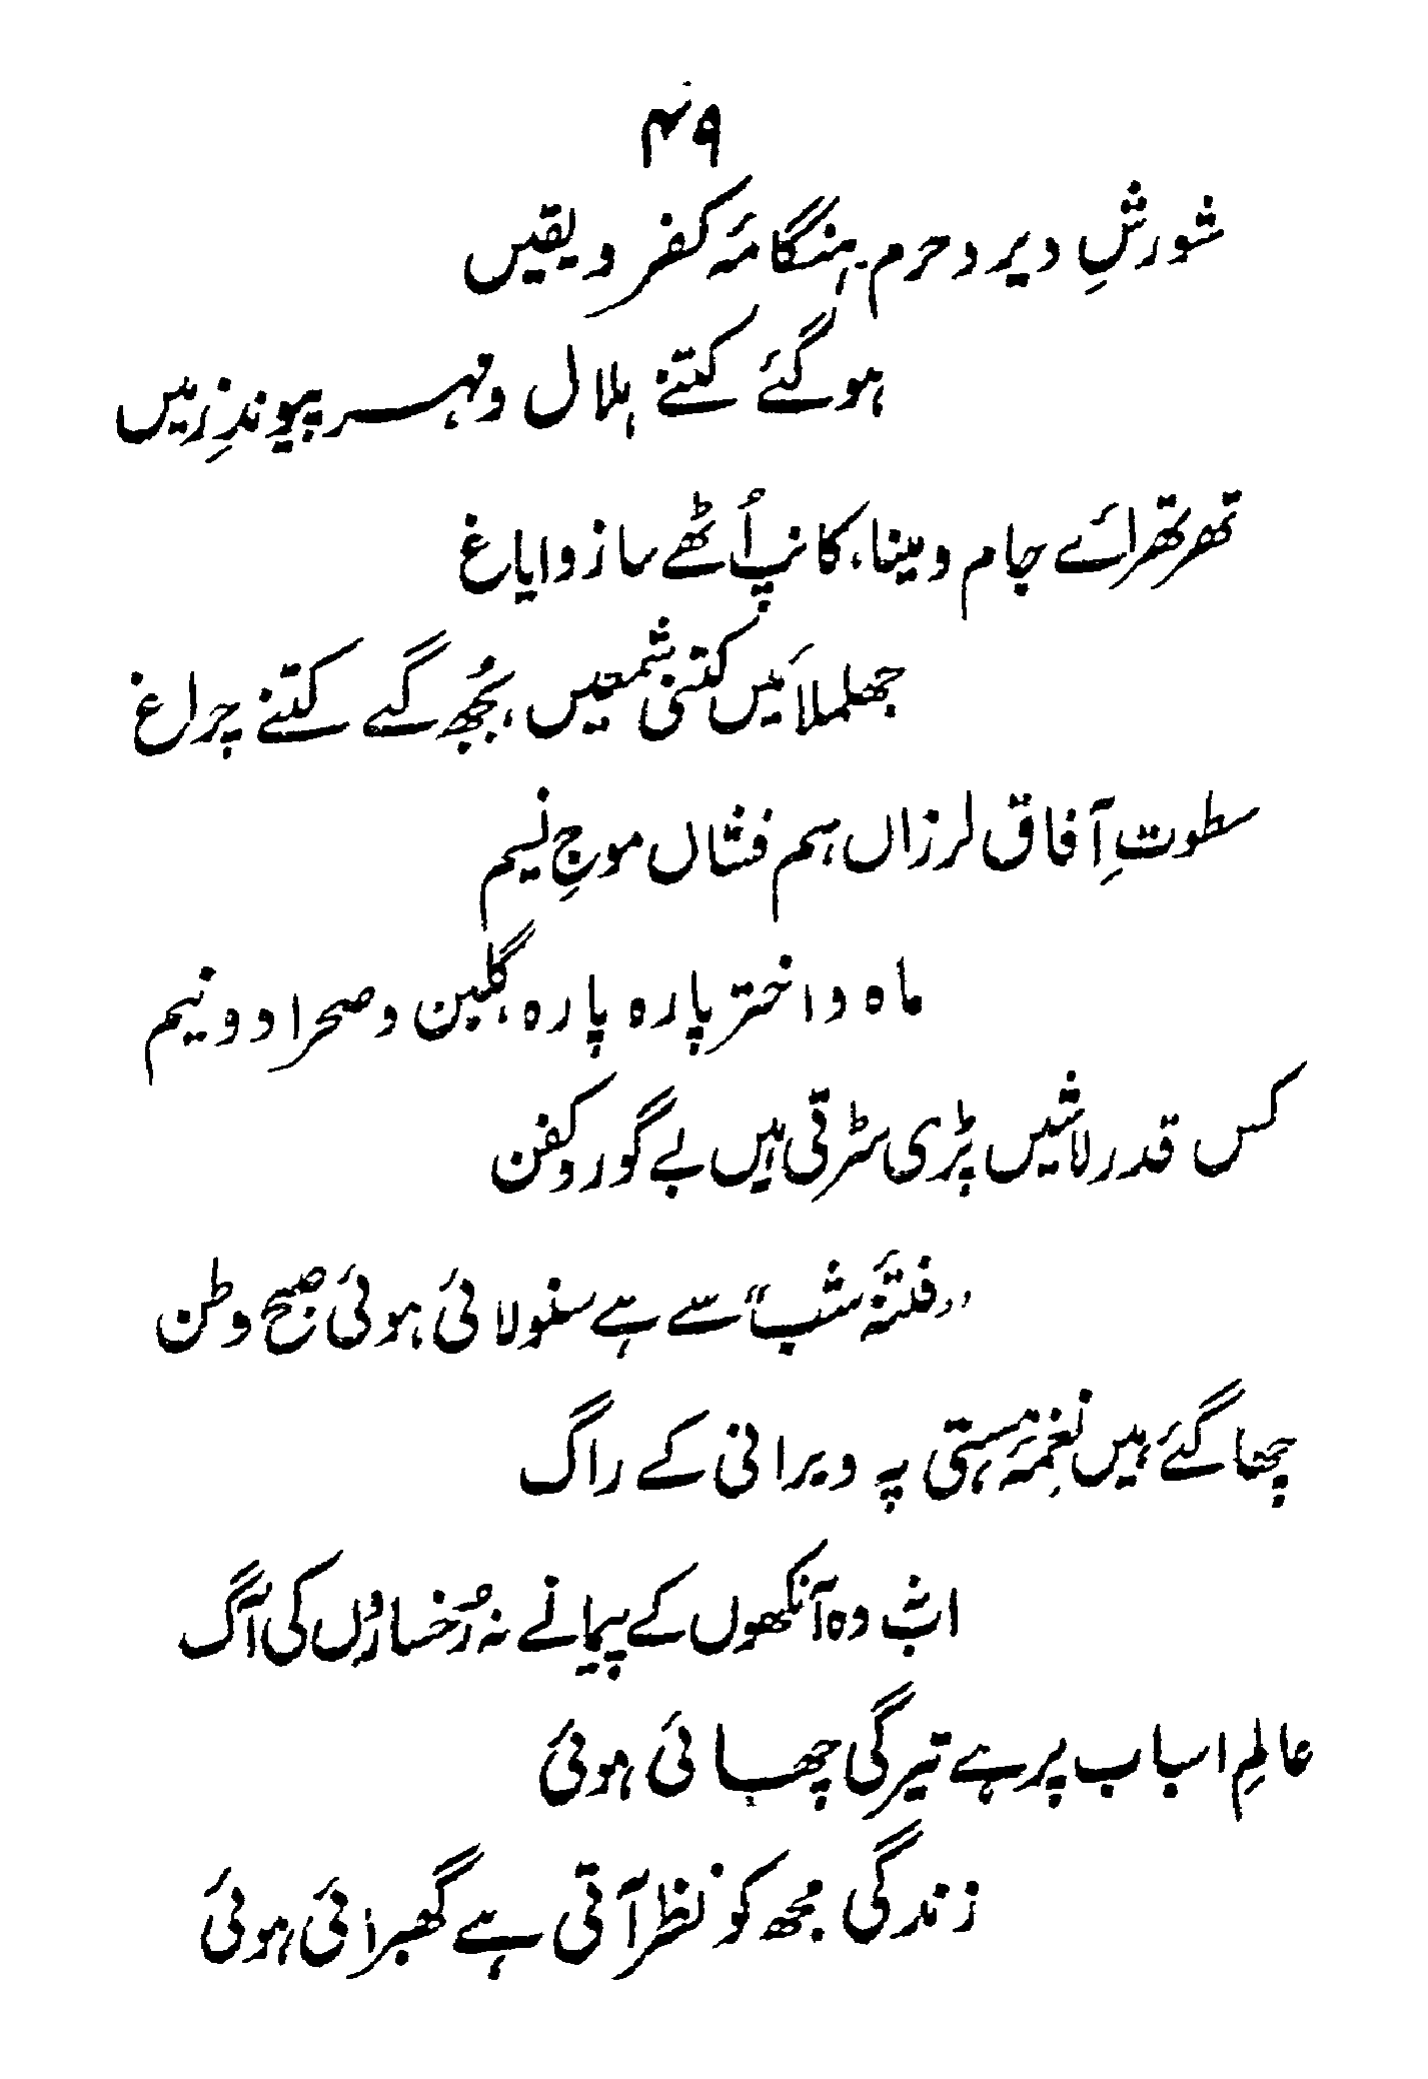 ۴۹
شورشِ دیر و حرم، ہنگامۂ کفر و یقیں
ہو گئے کتنے ہلال و مہر پیوندِ زمیں
تھرتھرائے جام و مینا، کانپ اُٹھے ساز و ایاغ
جھلملائیں کتنی شمعیں، بُجھ گے کتنے چراغ
سطوتِ آفاق لرزاں ہسم فشاں موجِ نسیم
ماہ و اختر پارہ پارہ، گلبن و صحرا دو نیم
کس قدر لاشیں پڑی سڑتی ہیں بے گور و کفن
"فتنۂ شب" سے ہے سنولائی ہوئی صبح وطن
چھا گئے ہیں نغمۂ ہستی پہ ویرانی کے راگ
اب نہ وہ آنکھوں کے پیمانے نہ رُخساروں کی آگ
عالمِ اسباب پر ہے تیرگی چھائی ہوئی
زندگی مجھ کو نظر آتی ہے گھبرائی ہوئی